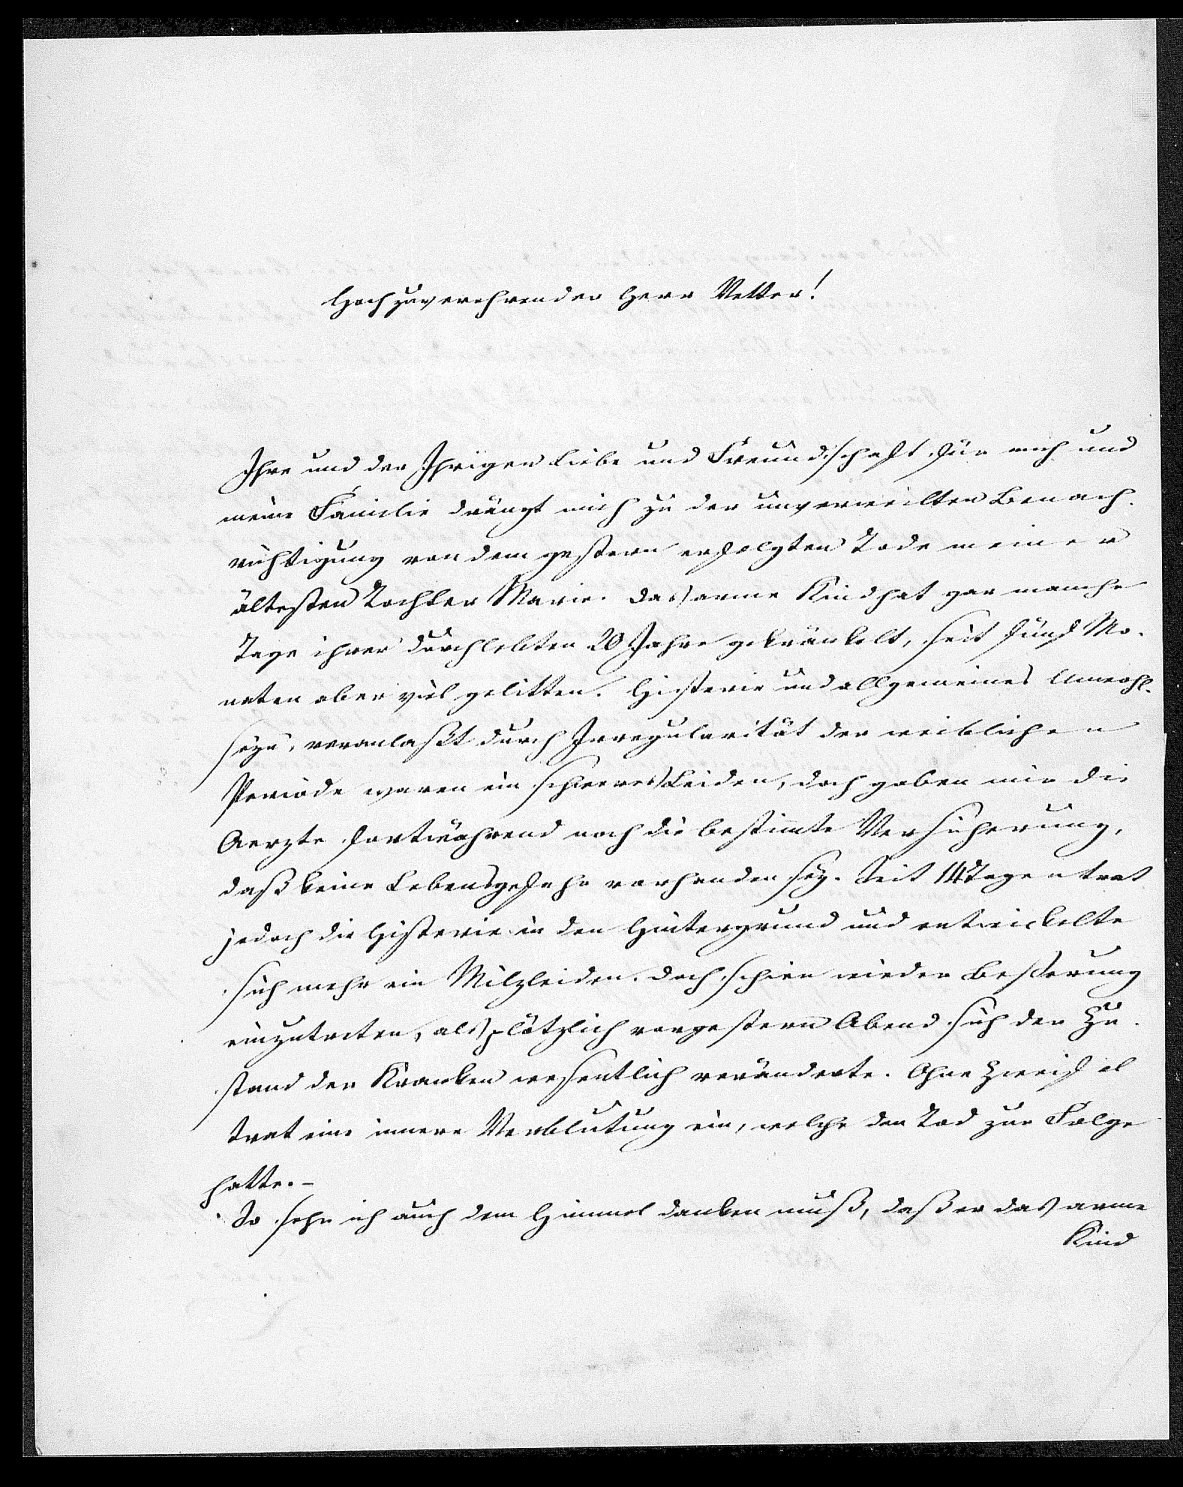 Hochzuverehrender Herr Vetter!
Ihre und der Ihrigen Liebe und Freundschaft für mich und
meine Familie drängt mich zu der unverweilten Benach-
richtigung von dem gestern erfolgten Tode meiner
ältesten Tochter Marie. Das arme Kind hat gar manche
Tage ihrer durchlebten 20 Jahre gekränkelt, seit fünf Mo-
naten aber viel gelitten. Histerie und allgemeines Unwohl-
seyn, veranlaßt durch Irregularität der weiblichen
Periode waren ein schweres Leiden, doch gaben mir die
Aerzte fortwährend noch die bestimmte Versicherung,
daß keine Lebensgefahr vorhanden sey. Seit 14 Tagen trat
jedoch die Histerie in den Hintergrund und entwickelte
sich mehr ein Milzleiden. Doch schien wieder Besserung
einzutreten, als plötzlich vorgestern Abend sich der Zu-
stand der Kranken wesentlich veränderte. Ohne Zweifel
trat eine innere Verblutung ein, welche den Tod zur Folge
hatte. –
So sehr ich auch dem Himmel danken muß, daß er das arme
Kind